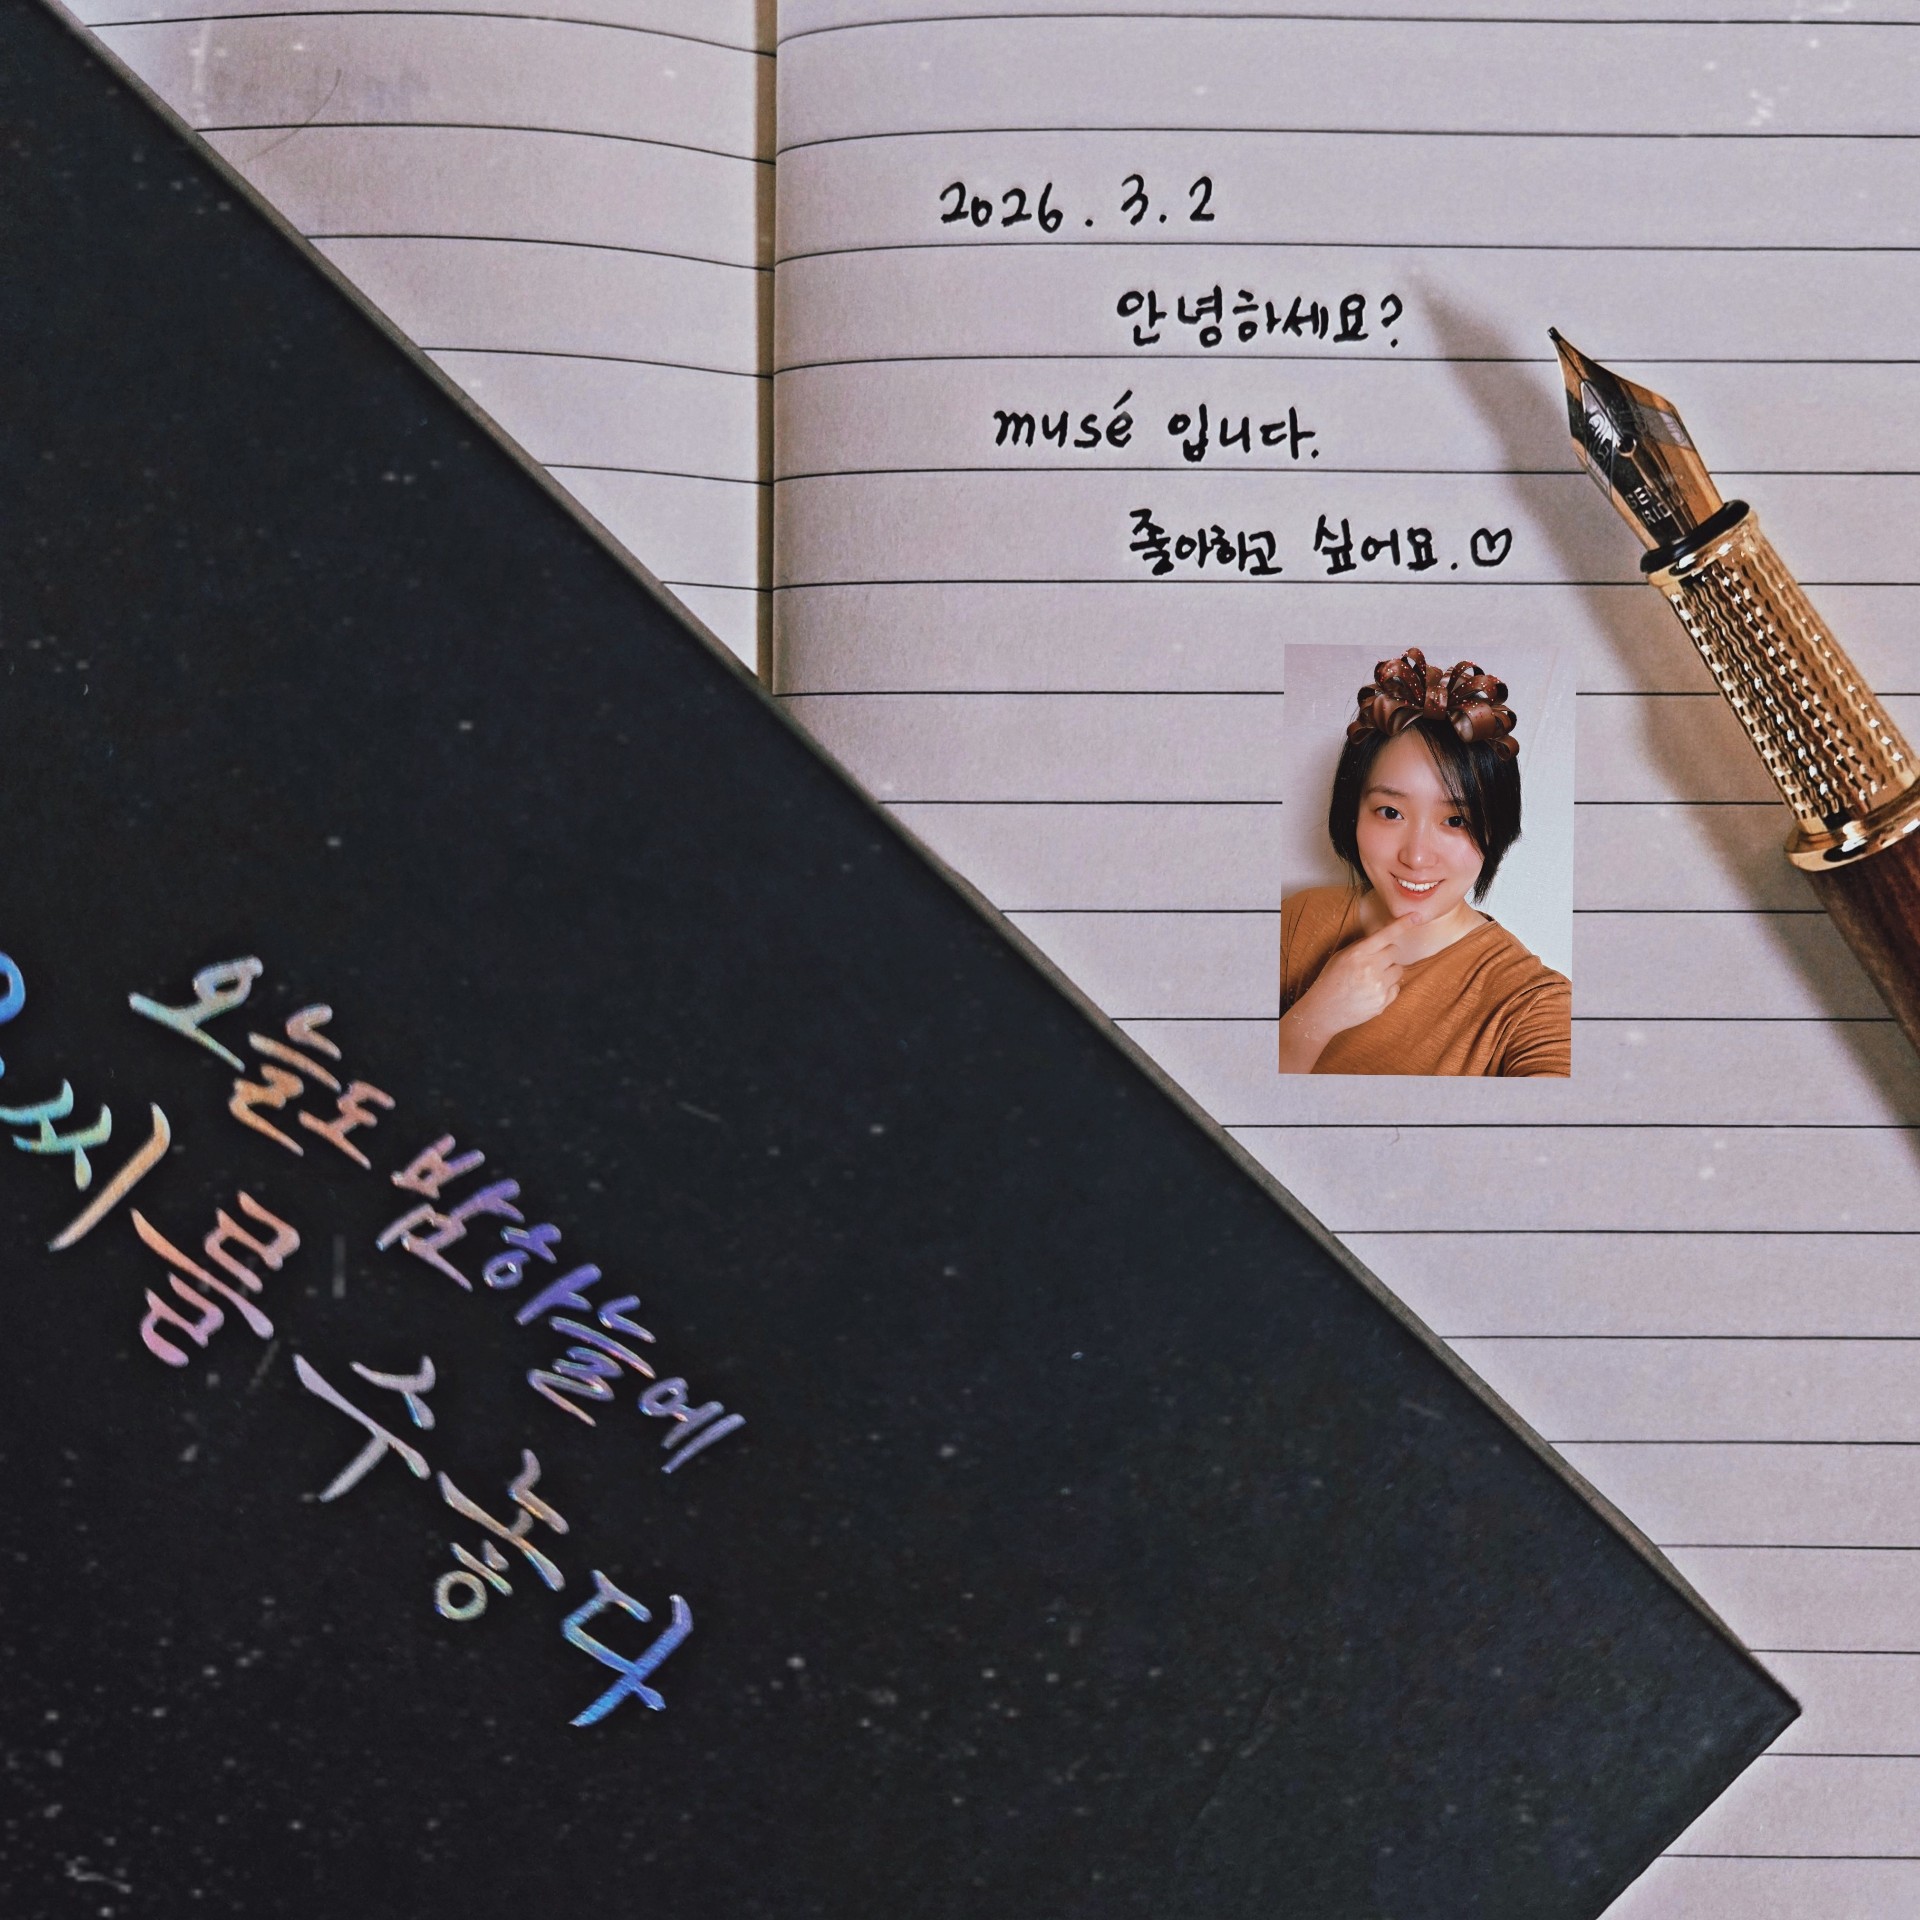 2026.3.2
안녕하세요?
musé 입니다.
좋아하고 싶어요.♡
오늘도 밤하늘에
시를 수놓다